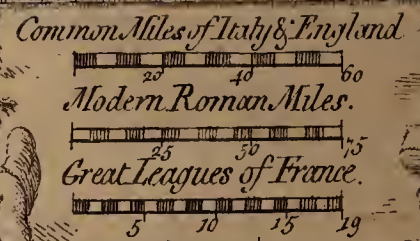 Common Miles of Italy & England
20 40 60
Modern Roman Miles.
25 50 75
Great Leagues of France.
5 10 15 19